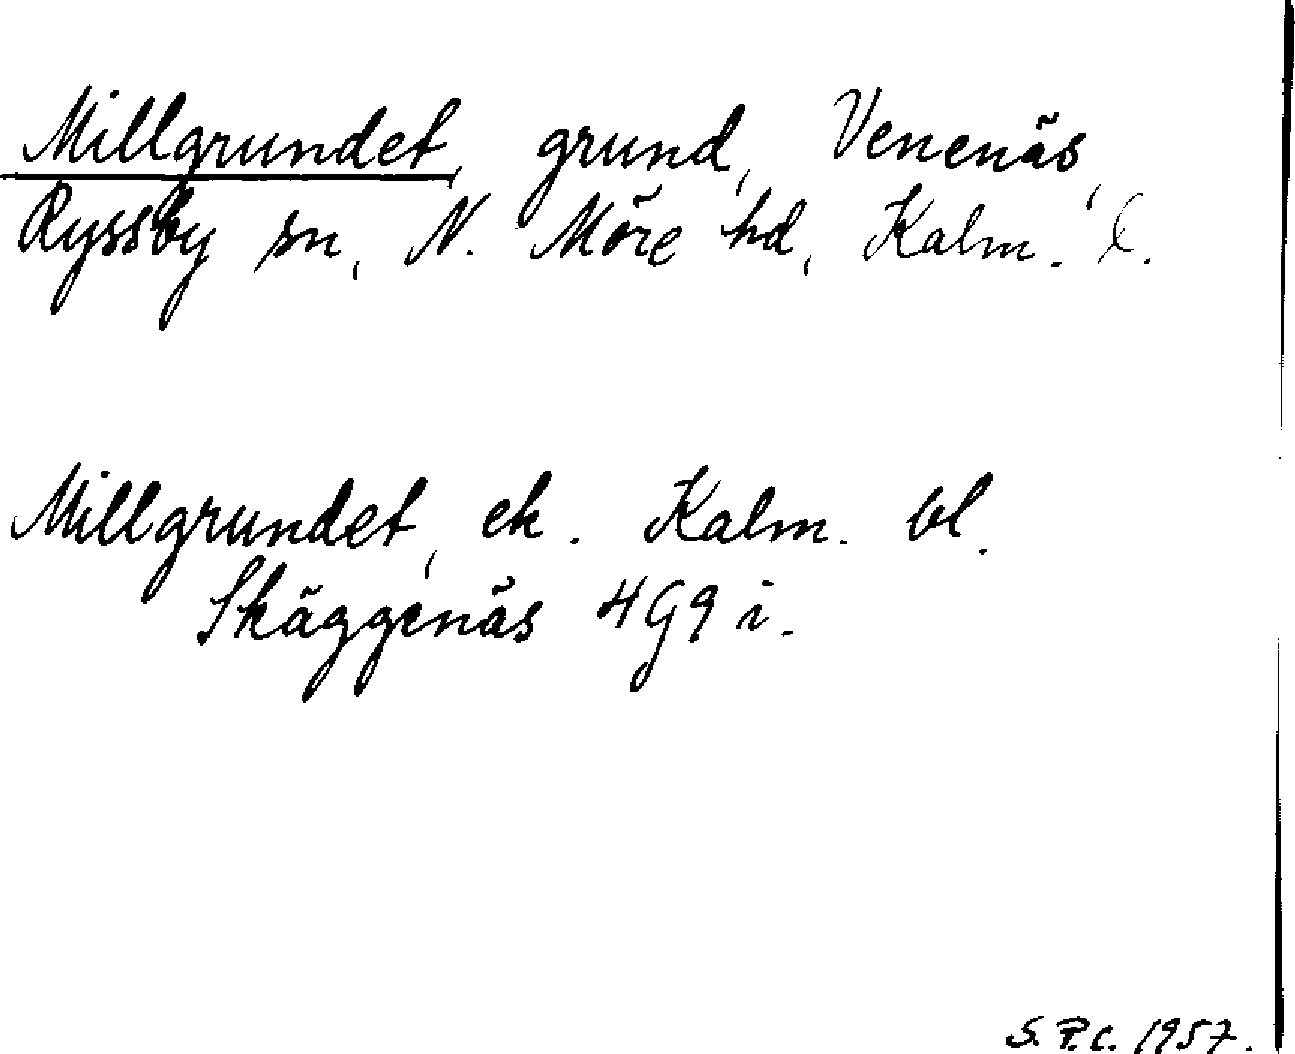 Millgrundet, grund, Venenäs,
Ryssby sn, N. Möre hd, Kalm. l.
Millgrundet, ek. Kalm. bl.
Skäggenäs 4G9i.
S.P.C. 1957.